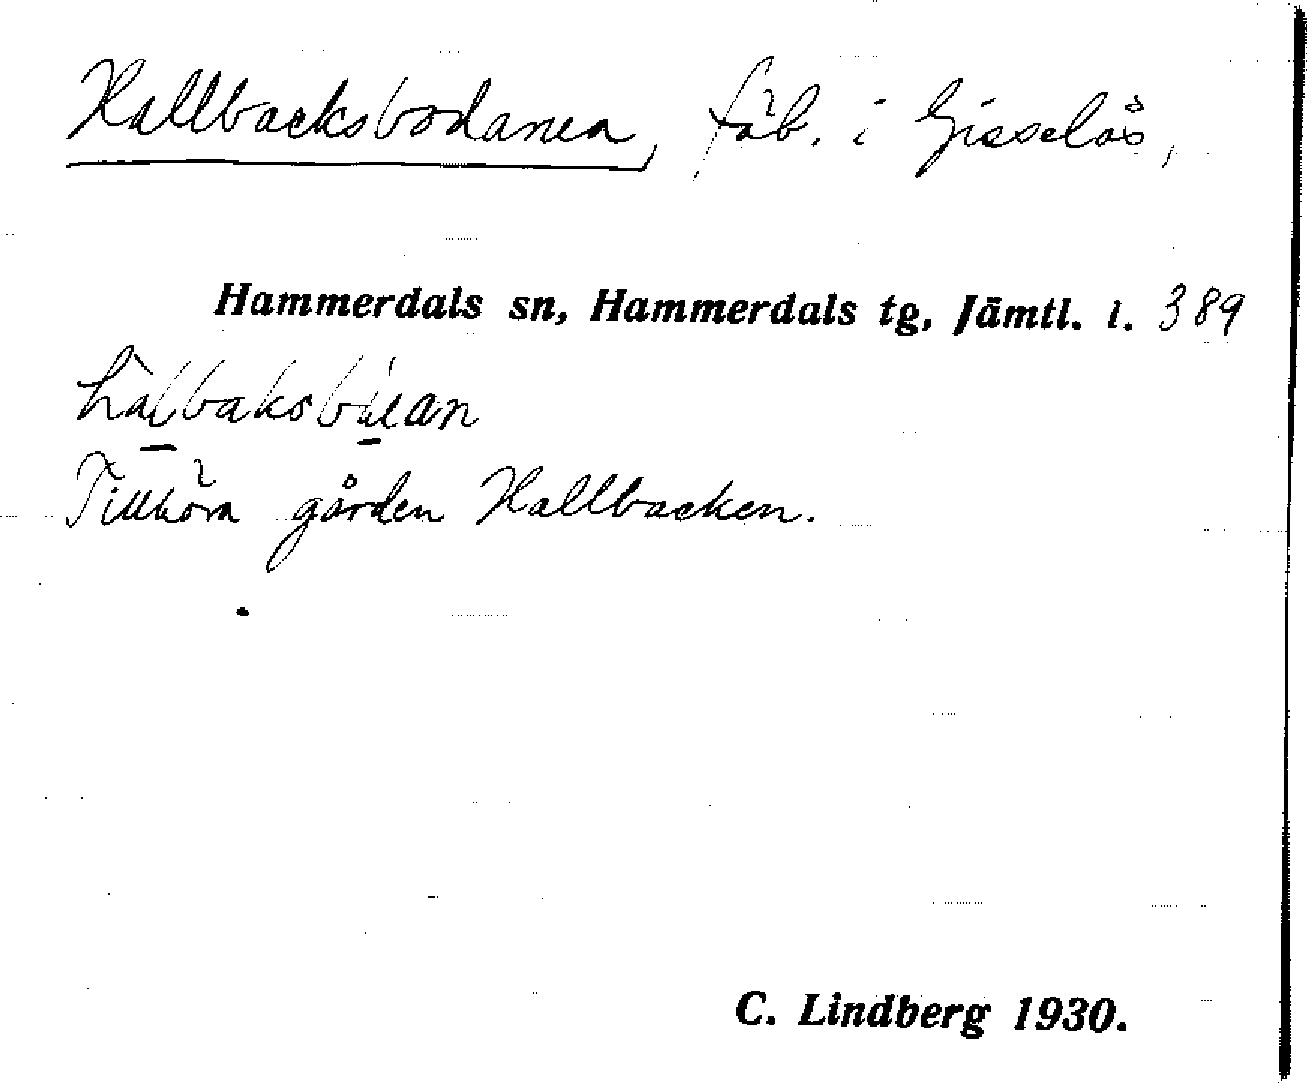 Kallbacksbodarna, fäb. i Gisselås,
Hammerdals sn, Hammerdals tg, Jämtl. l. 389
Tillhöra gården Kallbacken.
C. Lindberg 1930.